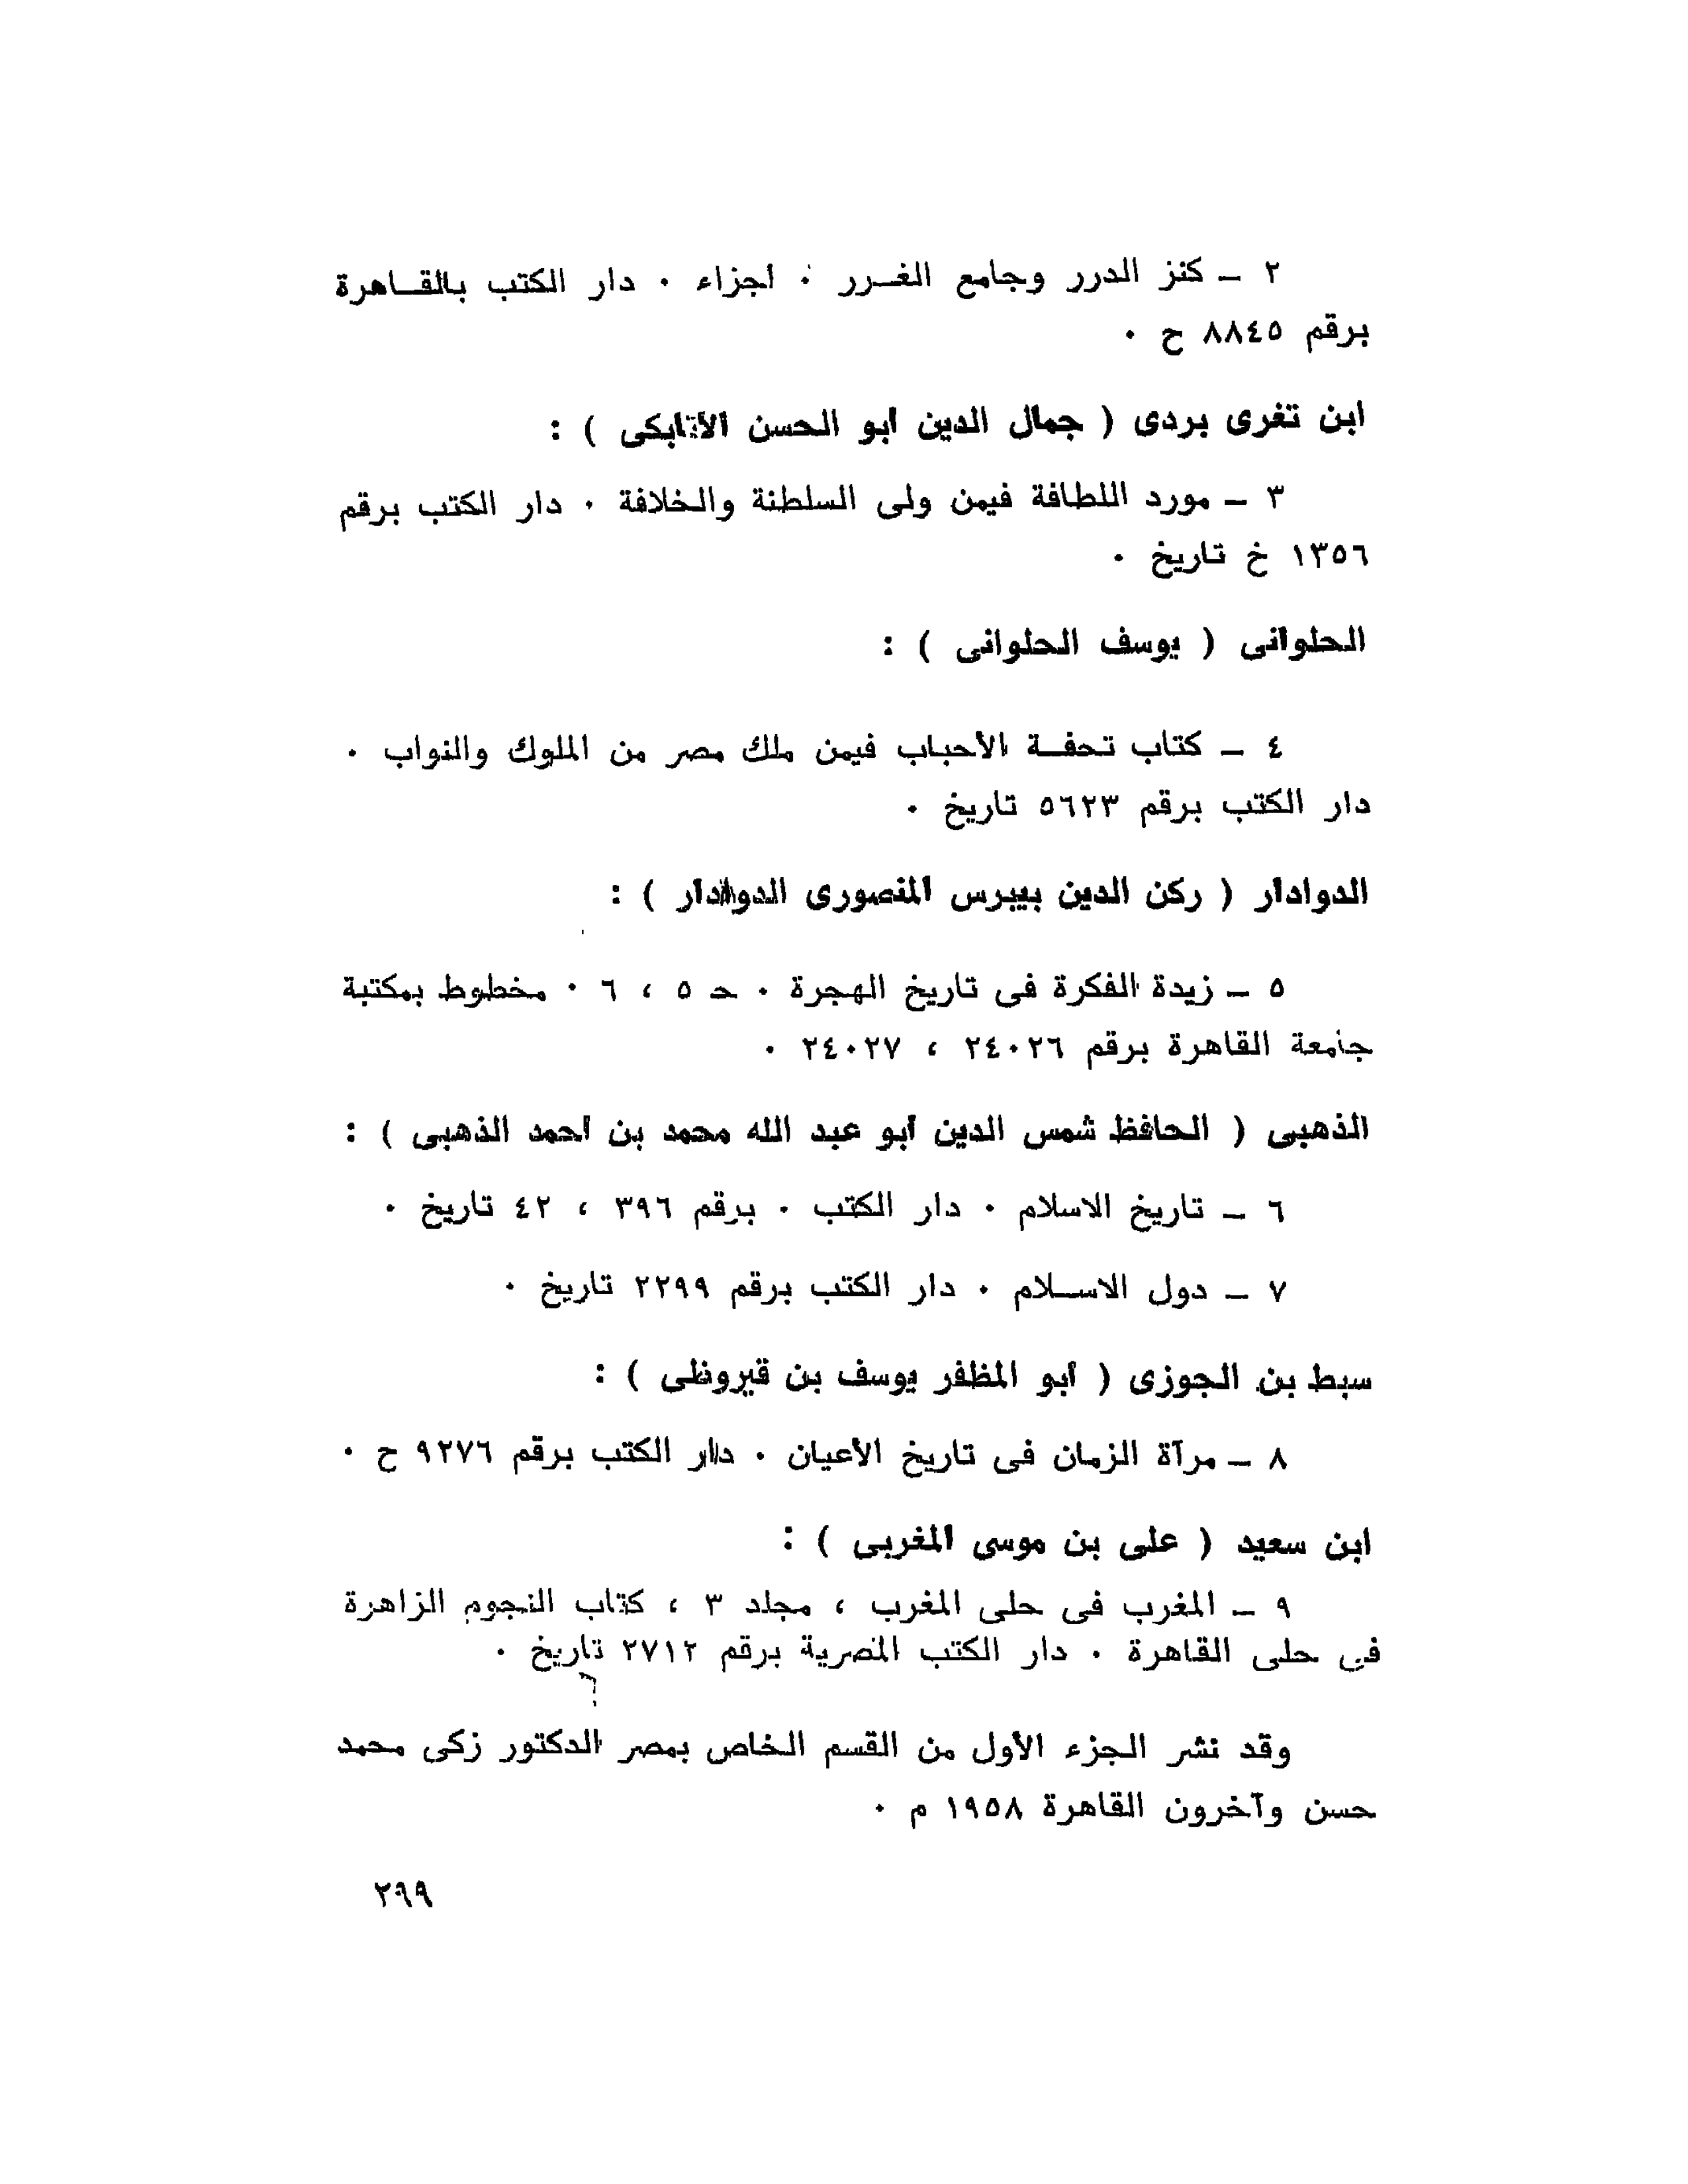 ٢ ــ كنز الدرر وجامع الغــرر ٠ أجزاء ٠ دار الكتب بالقــاهرة
برقم ٨٨٤٥ ح ٠
ابن تغرى بردى ( جمال الدين أبو الحسن الأتابكى ) :
٣ ــ مورد اللطافة فيمن ولى السلطنة والخلافة ٠ دار الكتب برقم
١٣٥٦ خ تاريخ ٠
الحلوانى ( يوسف الحلوانى ) :
٤ ــ كتاب تحفــة الأحباب فيمن ملك مصر من الملوك والنواب ٠
دار الكتب برقم ٥٦٢٣ تاريخ ٠
الدوادار ( ركن الدين بيبرس المنصورى الدوادار ) :
٥ ــ زبدة الفكرة فى تاريخ الهجرة ٠ حـ ٥ ، ٦ ٠ مخطوط بمكتبة
جامعة القاهرة برقم ٢٤٠٢٦ ، ٢٤٠٢٧ ٠
الذهبى ( الحافظ شمس الدين أبو عبد الله محمد بن أحمد الذهبى ) :
٦ ــ تاريخ الاسلام ٠ دار الكتب ٠ برقم ٣٩٦ ، ٤٢ تاريخ ٠
٧ ــ دول الاســلام ٠ دار الكتب برقم ٢٢٩٩ تاريخ ٠
سبط بن الجوزى ( أبو المظفر يوسف بن قيروغلى ) :
٨ ــ مرآة الزمان فى تاريخ الأعيان ٠ دار الكتب برقم ٩٢٧٦ ح ٠
ابن سعيد ( على بن موسى المغربى ) :
٩ ــ المغرب فى حلى المغرب ، مجلد ٣ ، كتاب النجوم الزاهرة
فى حلى القاهرة ٠ دار الكتب المصرية برقم ٢٧١٢ تاريخ ٠
وقد نشر الجزء الأول من القسم الخاص بمصر الدكتور زكى محمد
حسن وآخرون القاهرة ١٩٥٨ م ٠
٢٩٩